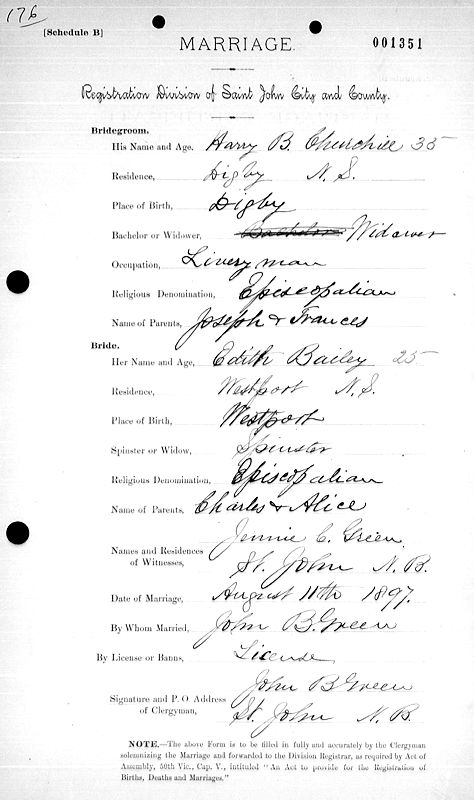 176
[Schedule B]
MARRIAGE.
001351
Registration Division of Saint John City and County.
Bridegroom.
His Name and Age, Harry B. Churchill 35
Residence, Digby N.S.
Place of Birth, Digby
Bachelor or Widower, Bachelor Widower
Occupation, Livery man
Religious Denomination, Episcopalian
Name of Parents, Joseph & Frances
Bride.
Her Name and Age, Edith Bailey 25
Residence, Westport N.S.
Place of Birth, Westport
Spinster or Widow, Spinster
Religious Denomination, Episcopalian
Name of Parents, Charles & Alice
Jennie C. Green
Names and Residences
of Witnesses, St. John N.B.
Date of Marriage, August 11th 1897.
By Whom Married, John B. Green
By License or Banns, License
John B Green
Signature and P. O. Address
of Clergyman, St. John N.B.
NOTE.—The above Form is to be filled in fully and accurately by the Clergyman
solemnizing the Marriage and forwarded to the Division Registrar, as required by Act of
Assembly, 50th Vic., Cap. V., intituled "An Act to provide for the Registration of
Births, Deaths and Marriages."